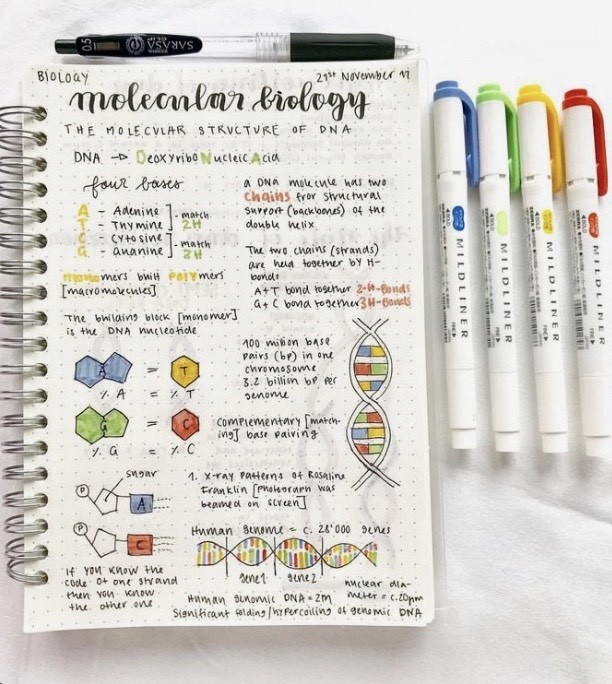 0.5
SARASA
BIOLOGY
21st November 17
molecular biology
THE MOLECULAR STRUCTURE OF DNA
DNA → DeoxyriboNucleic Acid
four bases
A - Adenine
T - Thymine
match
2H
C - Cytosine
G - Guanine
match
3H
monomers built polymers
[macromolecules]
The building block [monomer]
is the DNA nucleotide
A = T
% A = % T
G = C
% G = % C
sugar
P
A
P
C
If you know the
code of one strand
then you know
the other one
a DNA molecule has two
chains for structural
support (backbones) of the
double helix
The two chains (strands)
are held together by H-
bonds
A+T bond together 2-H-Bonds
G+C bond together 3H-Bonds
100 million base
pairs (bp) in one
chromosome
3.2 billion bp per
genome
complementary [match-
ing] base pairing
1. X-ray patterns of Rosaline
Franklin [photograph was
beamed on screen]
Human genome = c. 28'000 genes
gene1 gene2
nuclear dia-
meter = c.20µm
Human genomic DNA = 2m
Significant folding/hypercoiling of genomic DNA
MILDLINER
MILDLINER
MILDLINER
MILDLINER